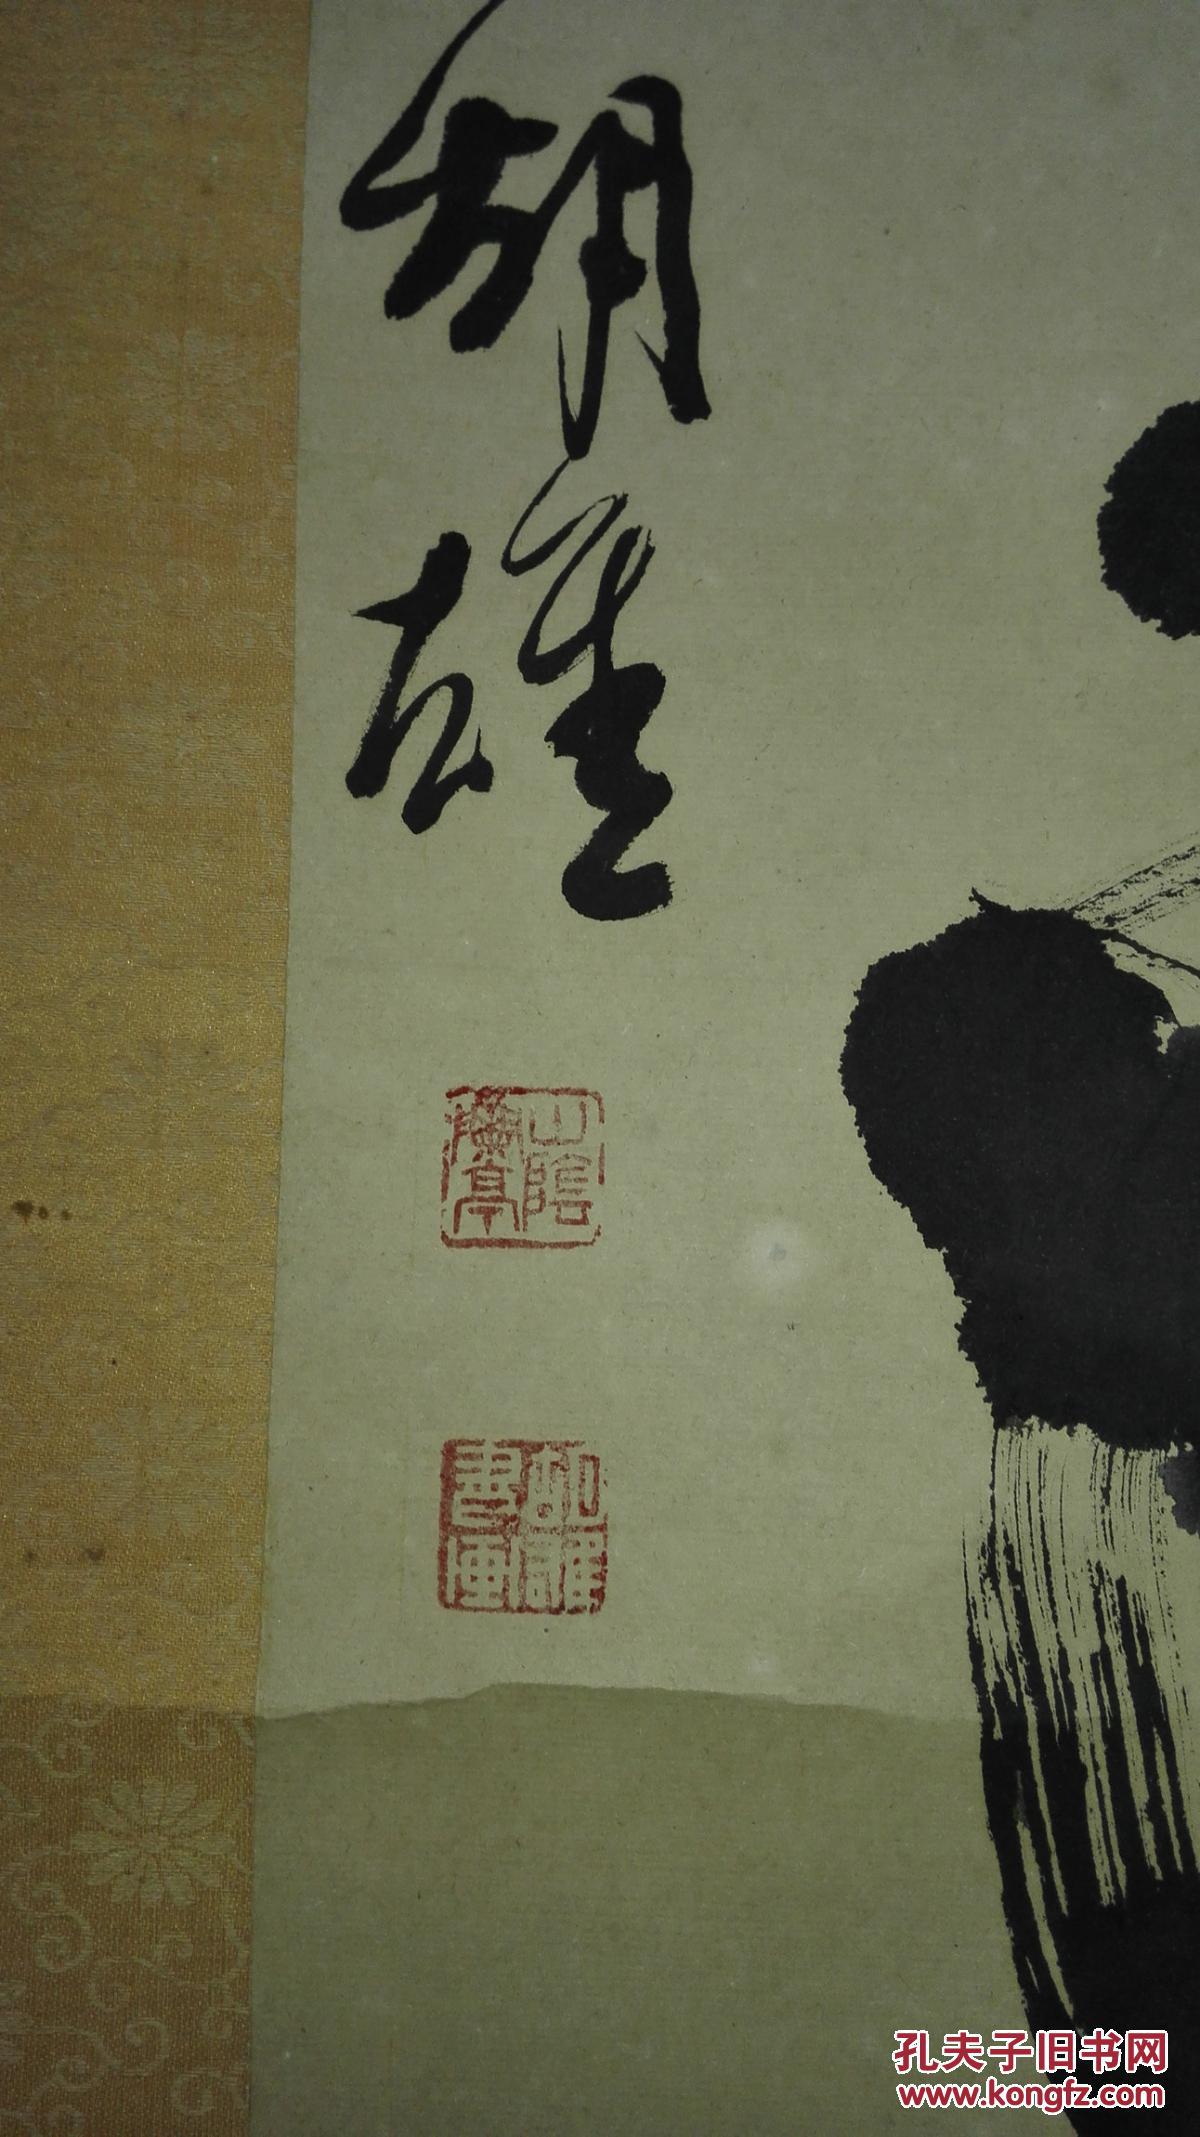 胡雄
山陰
蘭亭
胡雄
書画
孔夫子旧书网
www.kongfz.com